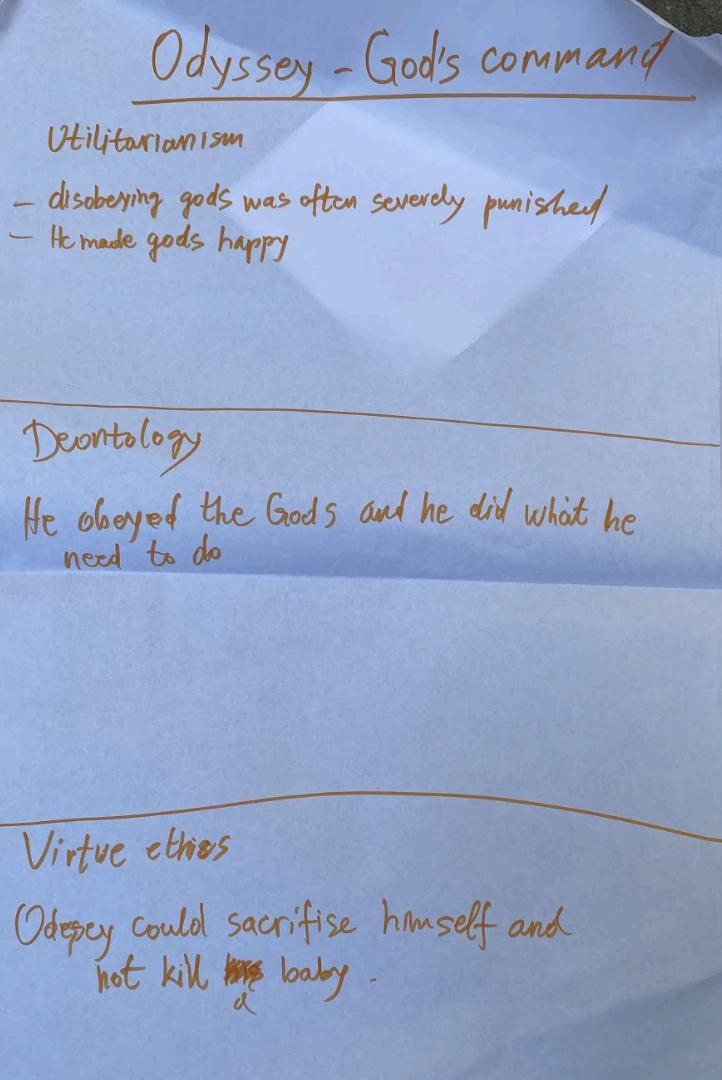 Odyssey - God's command
Utilitarianism
- disobeying gods was often severely punished
- He made gods happy
Deontology
He oboyed the Gods and he did what he
need to do
Virtue ethics
Odepsey could sacrifise himself and
not kill baby.
a